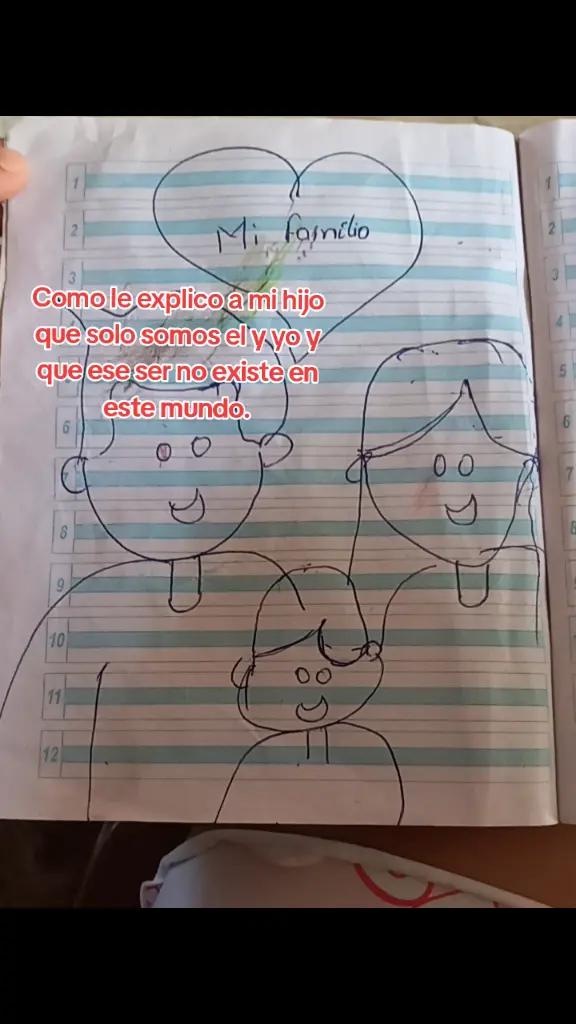 1
1
2
Mi familio
2
3
3
Como le explico a mi hijo
que solo somos el y yo y
que ese ser no existe en
este mundo.
4
5
6
6
7
7
8
8
9
10
11
12